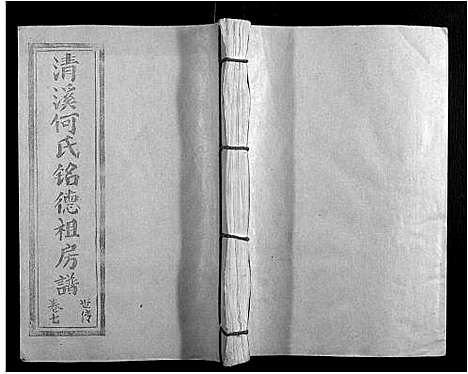 清溪何氏銘德祖房譜
世傳
卷七